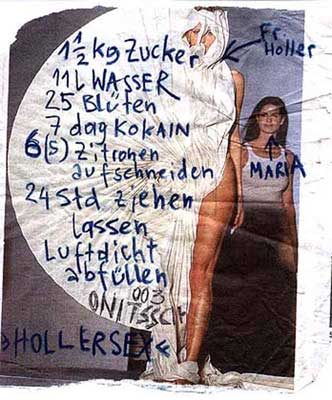 1½ kg Zucker
Fr.
Holler
11 L WASSER
25 Blüten
7 dag KOKAIN
6 (5) Zitronen
aufschneiden
MARIA
24 Std. ziehen
lassen
Luftdicht
abfüllen
003
»HOLLERSEX«